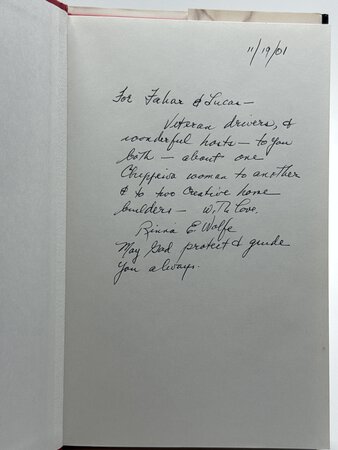 11/19/01
For Fahar & Lucas—
Veteran drivers, &
wonderful hosts — to you
both — about one
Chippewa woman to another
& to two Creative home
builders — with love.
Rinna E Wolfe
May God protect & guide
you always.